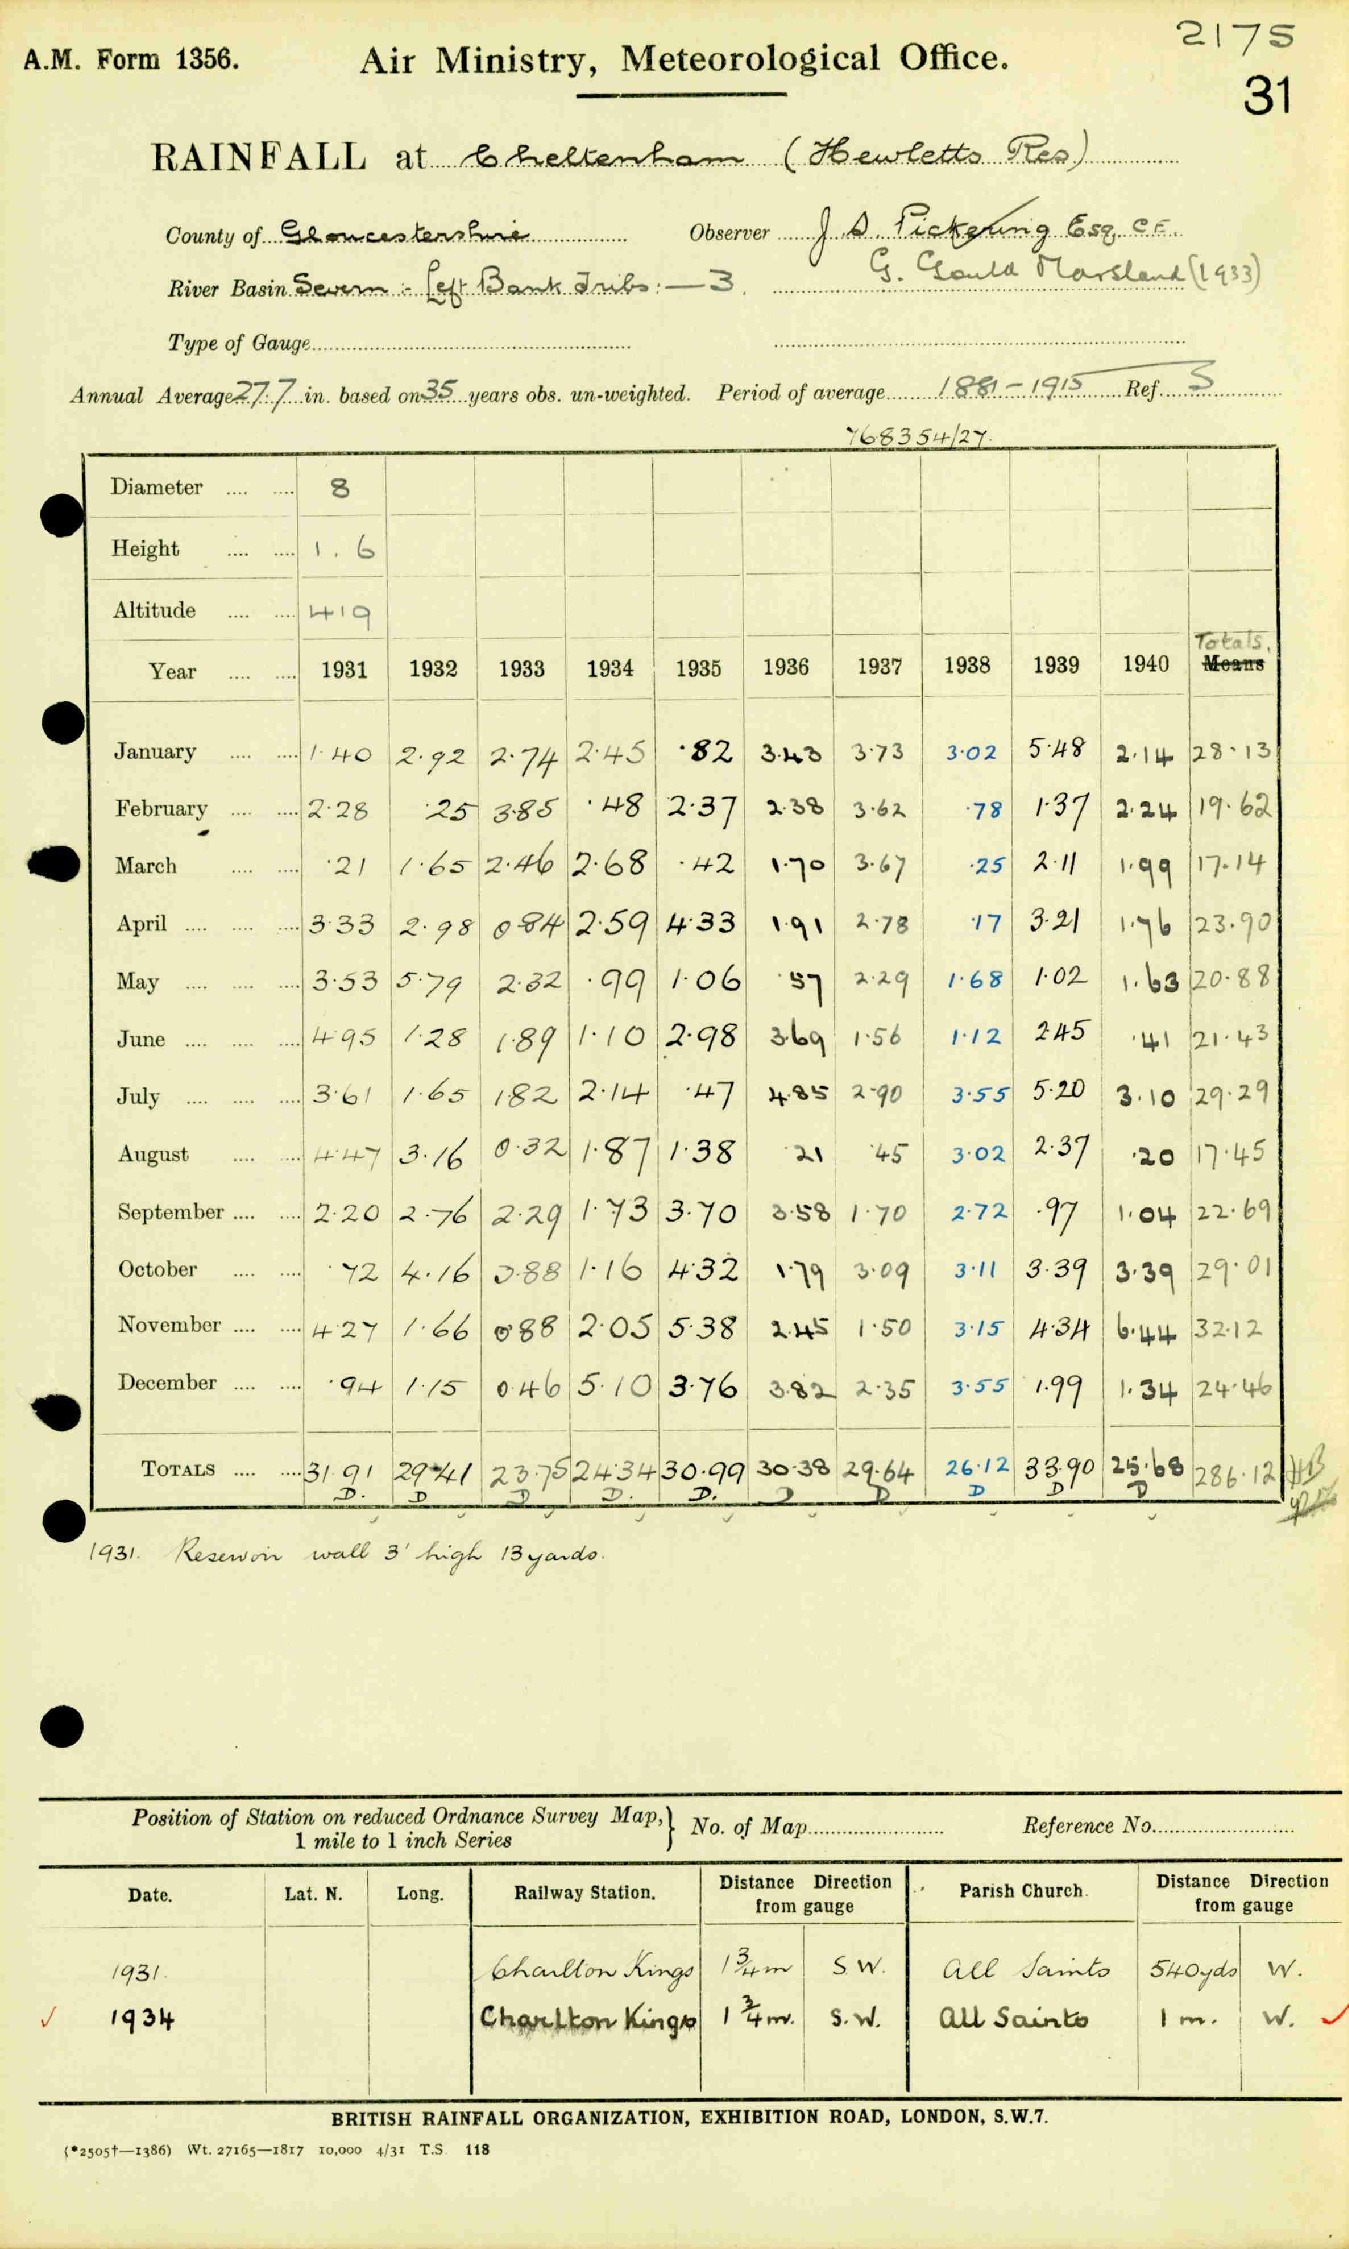 2175
31
A.M. Form 1356. Air Ministry, Meteorological Office.
RAINFALL at Cheltenham (Hewletts Res)
County of Gloucestershire Observer J. S. Pickering Esq. C.E.
River Basin Severn :- Left Bank Tribs :— 3. G. Gould Marsland (1933)
Type of Gauge
Annual Average 27.7 in. based on 35 years obs. un-weighted. Period of average 1881-1915 Ref. S
768354/27.
Diameter .... .... 8
Height .... .... 1.6
Altitude .... .... 419
Totals.
Year .... .... 1931 1932 1933 1934 1935 1936 1937 1938 1939 1940 Means
January .... .... 1.40 2.92 2.74 2.45 .82 3.43 3.73 3.02 5.48 2.14 28.13
February .... .... 2.28 .25 3.85 .48 2.37 2.38 3.62 .78 1.37 2.24 19.62
March .... .... .21 1.65 2.46 2.68 .42 1.70 3.67 .25 2.11 1.99 17.14
April .... .... .... 3.33 2.98 0.84 2.59 4.33 1.91 2.78 .17 3.21 1.76 23.90
May .... .... .... 3.53 5.79 2.32 .99 1.06 .57 2.29 1.68 1.02 1.63 20.88
June .... .... .... 4.95 1.28 1.89 1.10 2.98 3.69 1.56 1.12 2.45 .41 21.43
July .... .... .... 3.61 1.65 1.82 2.14 .47 4.85 2.90 3.55 5.20 3.10 29.29
August .... .... 4.47 3.16 0.32 1.87 1.38 .21 .45 3.02 2.37 .20 17.45
September .... .... 2.20 2.76 2.29 1.73 3.70 3.58 1.70 2.72 .97 1.04 22.69
October .... .... .72 4.16 3.88 1.16 4.32 1.79 3.09 3.11 3.39 3.39 29.01
November .... .... 4.27 1.66 0.88 2.05 5.38 2.45 1.50 3.15 4.34 6.44 32.12
December .... .... .94 1.15 0.46 5.10 3.76 3.82 2.35 3.55 1.99 1.34 24.46
TOTALS .... .... 31.91 29.41 23.75 24.34 30.99 30.38 29.64 26.12 33.90 25.68 286.12
D. D D D. D. D D D D D
1931. Reservoir wall 3' high 13 yards.
Position of Station on reduced Ordnance Survey Map,} No. of Map Reference No.
1 mile to 1 inch Series
Date. Lat. N. Long. Railway Station. Distance Direction from gauge Parish Church. Distance Direction from gauge
1931. Charlton Kings 1 3/4 m S.W. All Saints 540yds W.
✓ 1934 Charlton Kings 1 3/4 m. S.W. All Saints 1 m. W. ✓
BRITISH RAINFALL ORGANIZATION, EXHIBITION ROAD, LONDON, S.W.7.
(*2505†—1386) Wt. 27165—1817 10,000 4/31 T.S. 118